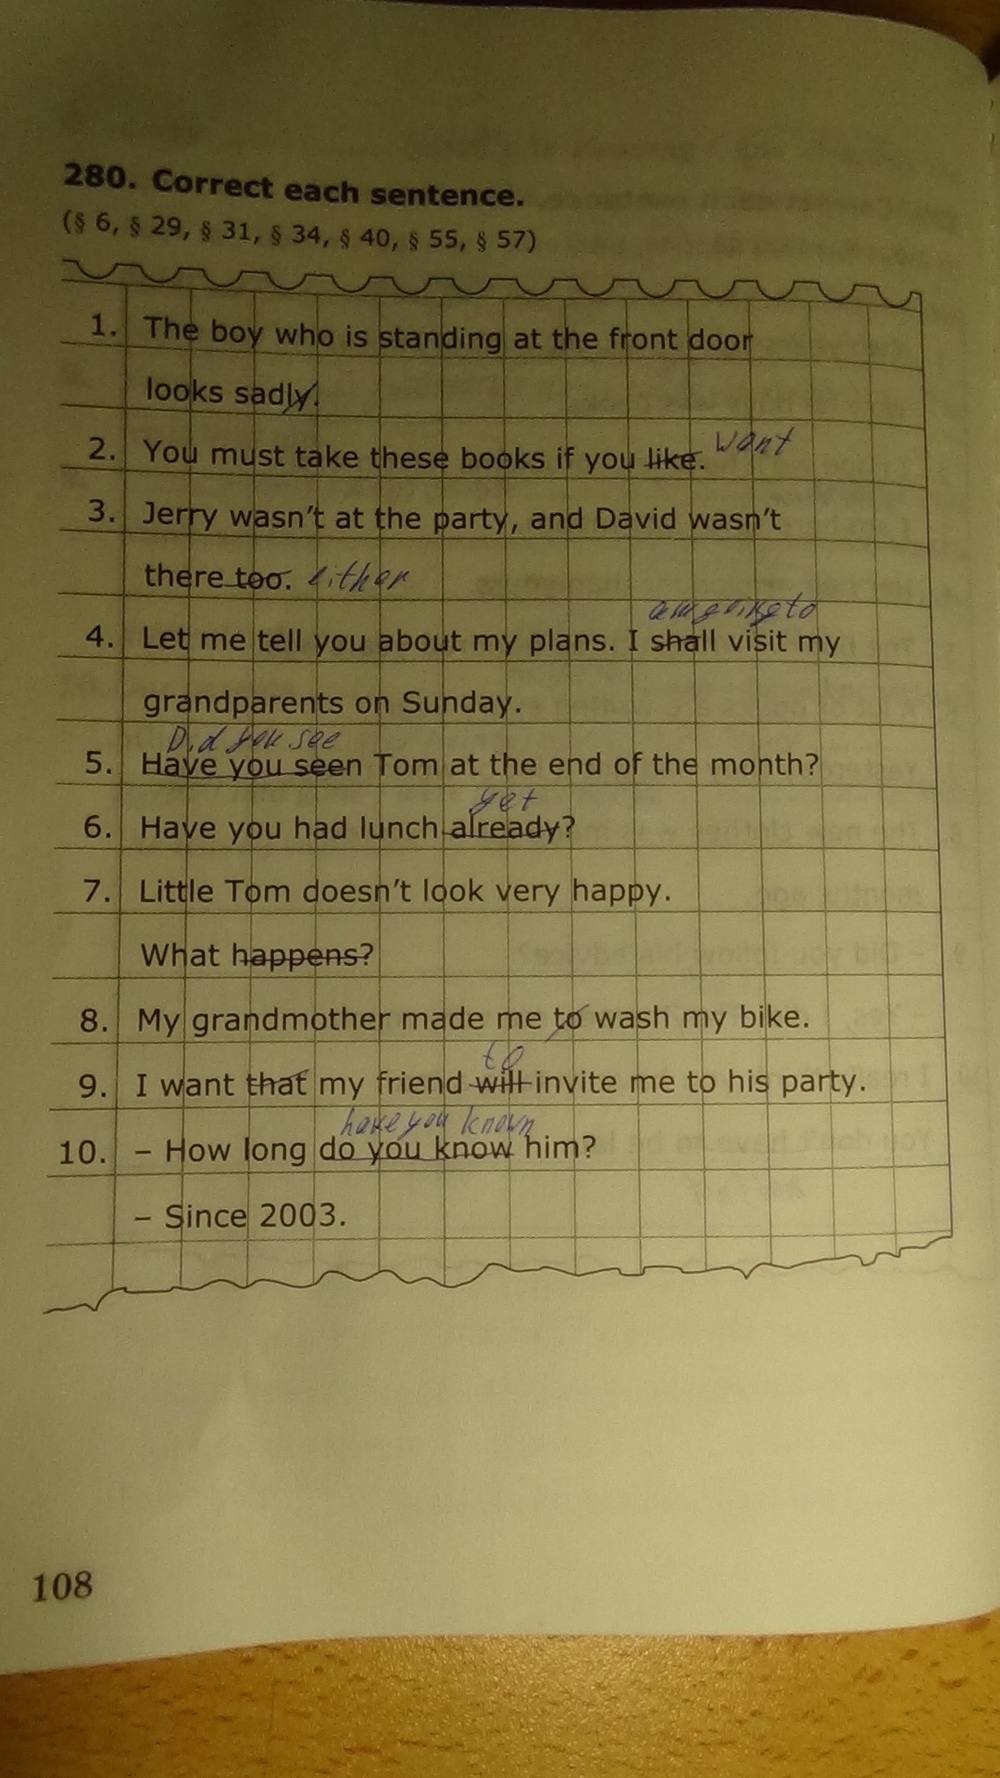 280. Correct each sentence.
(§ 6, § 29, § 31, § 34, § 40, § 55, § 57)
1. The boy who is standing at the front door
looks sadly.
2. You must take these books if you like. want
3. Jerry wasn't at the party, and David wasn't
there too. either
am going to
4. Let me tell you about my plans. I shall visit my
grandparents on Sunday.
Did you see
5. Have you seen Tom at the end of the month?
yet
6. Have you had lunch already?
7. Little Tom doesn't look very happy.
What happens?
8. My grandmother made me to wash my bike.
to
9. I want that my friend will invite me to his party.
have you known
10. – How long do you know him?
– Since 2003.
108